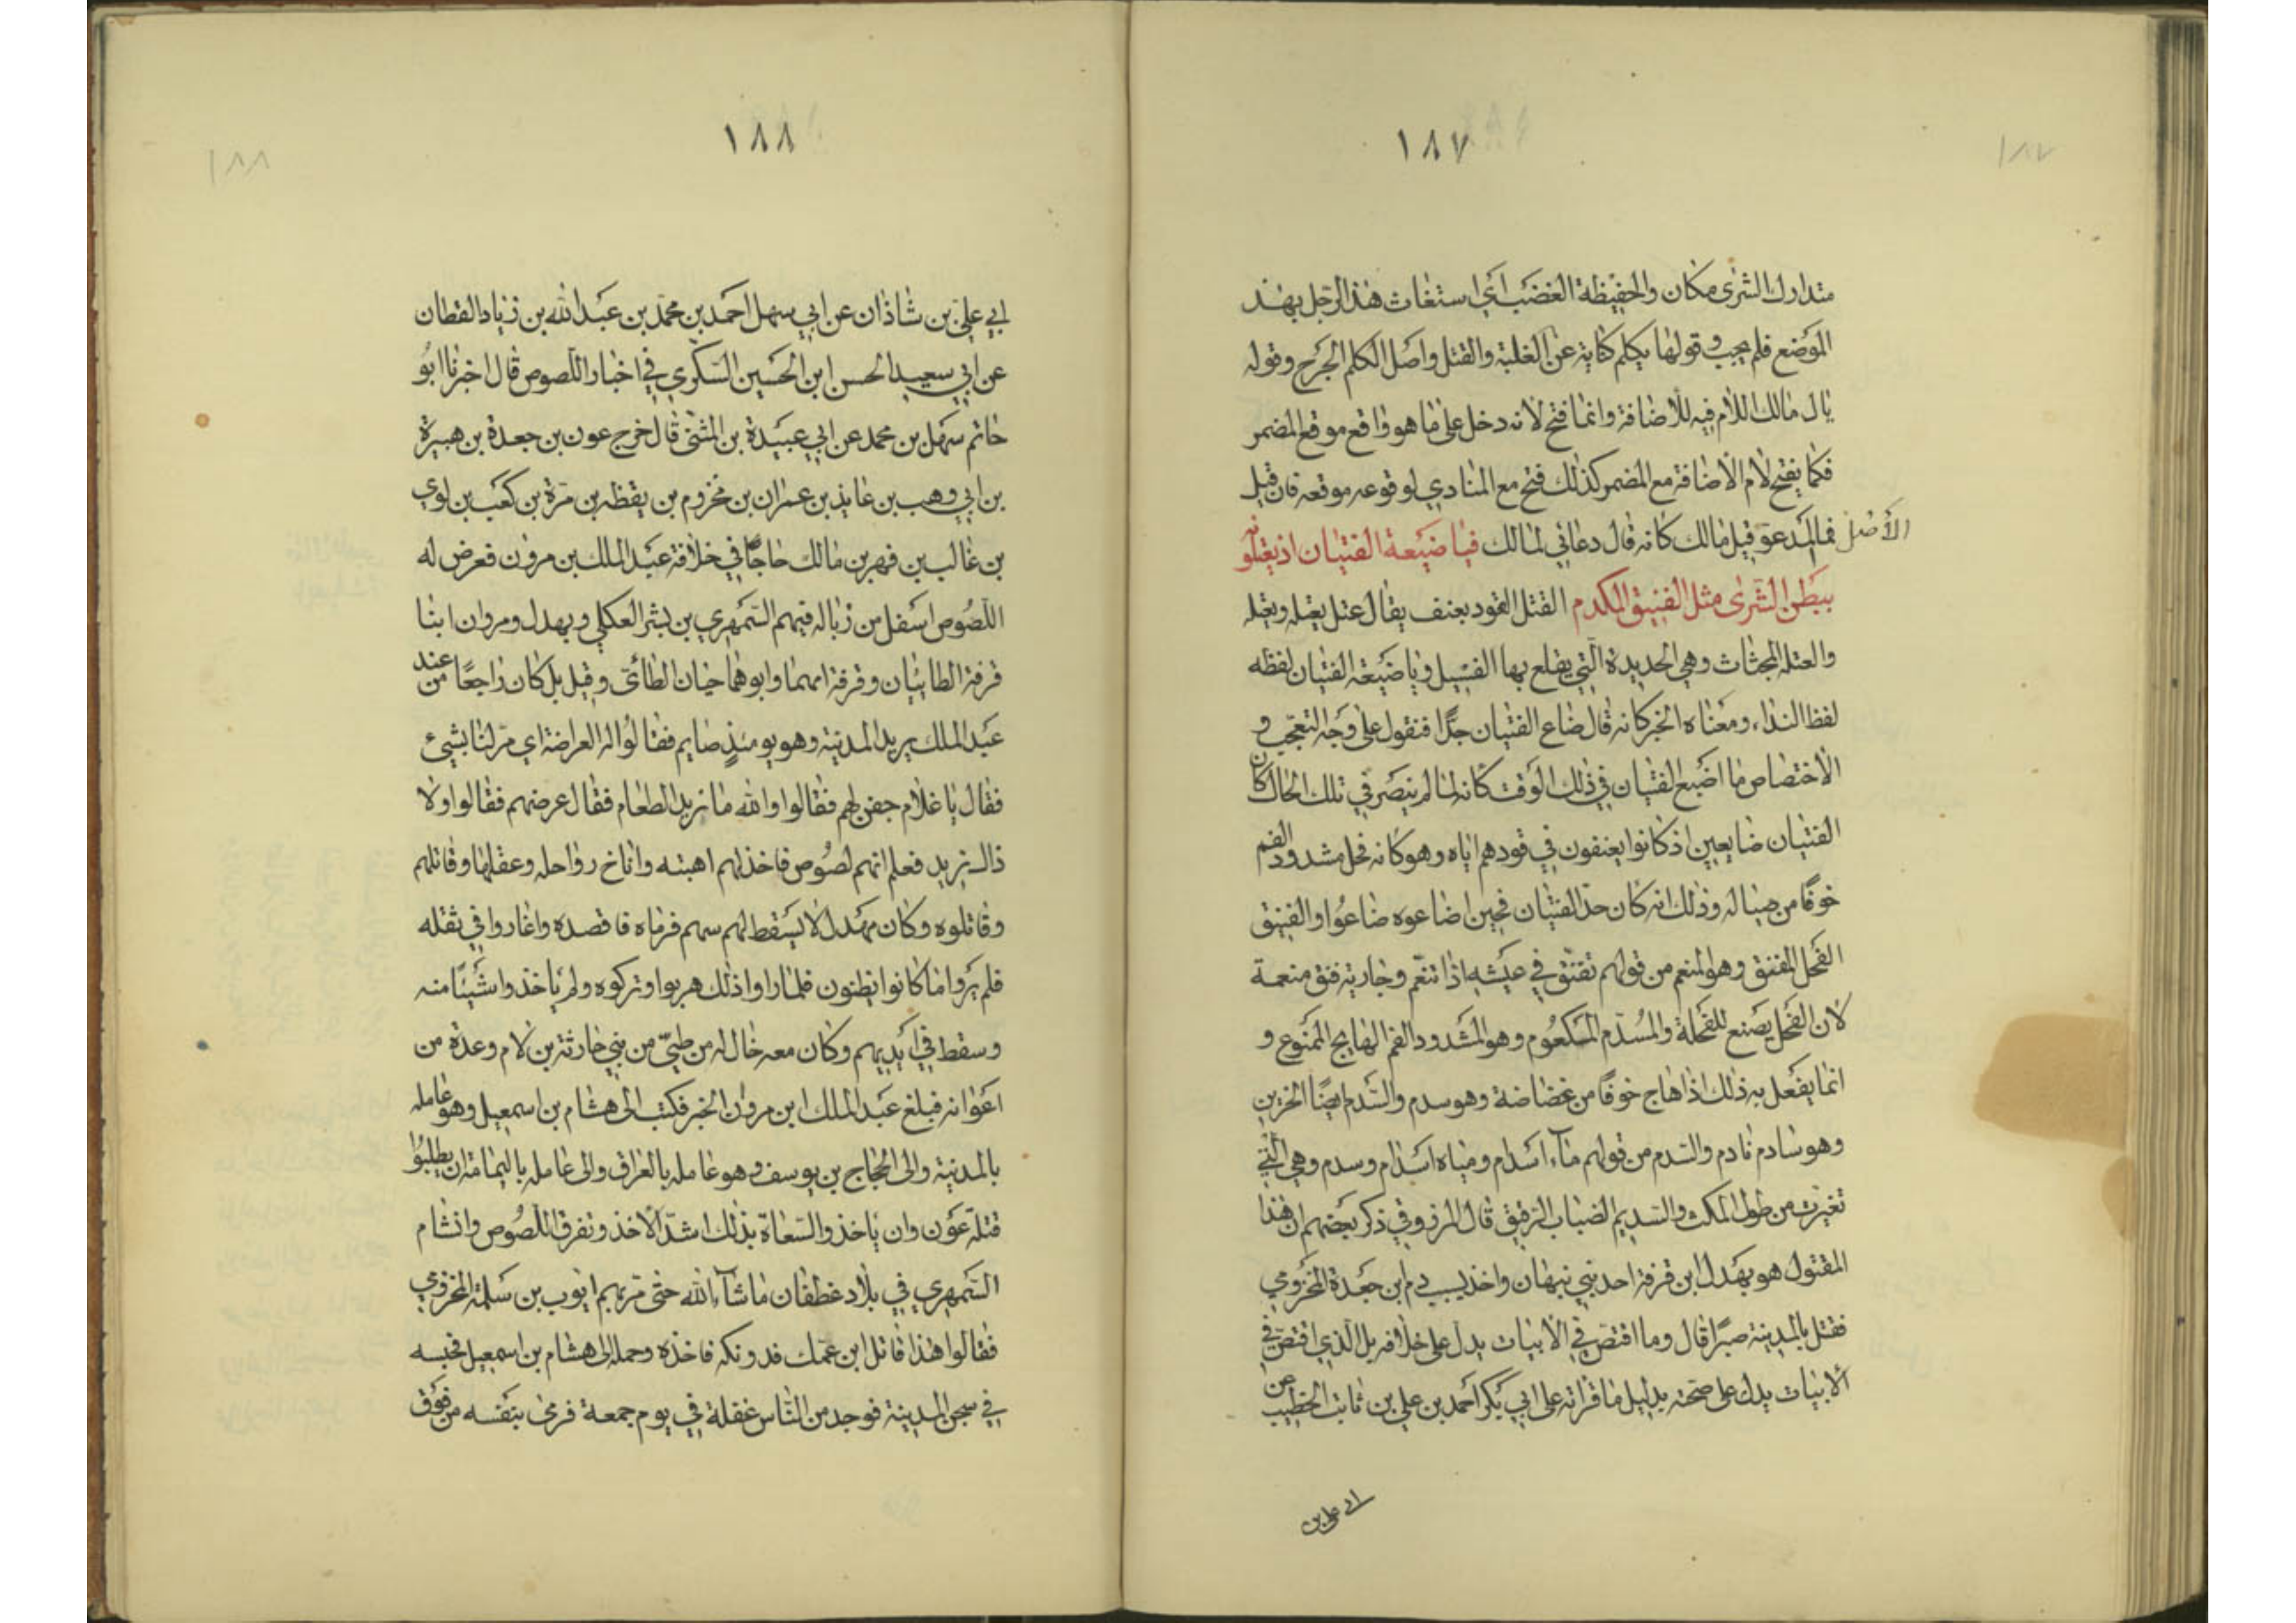 ١٨٧
١٨٧
متدارك الشرى مكان والحفيظة الغضب اي استغاث هذا الرجل بهذ
الموضع فلم يجب وقولها يكلم كناية عن الغلبة والقتل واصل الكلم الجرح وقوله
يال مالك اللام فيه للاضافة وانما فتح لانه دخل على ما هو واقع موقع المضمر
فكما يفتح لام الاضافة مع المضمر كذلك فتح مع المنادي لوقوعه موقعه فان قيل
الأصل فما المدعو قيل مالك كانه قال دعاني لمالك فيا ضيعة الفتيان اذ يعتلونه
ببطن الشرى مثل الفنيق المكدم القتل القود بعنف يقال عتل يعتله ويعتله
والعتلة المجثاث وهي الحديدة التي يقلع بها الفسيل ويا ضيعة الفتيان لفظه
لفظ النداء ومعناه الخبر كانه قال ضاع الفتيان جدًا فنقول على وجه التعجب و
الاختصاص ما اضيع الفتيان في ذلك الوقت كانه لما لم ينصر في تلك الحال كان
الفتيان ضايعين اذ كانوا يعنفون في قودهم اياه وهو كانه فحل مشدود الفم
خوفًا من صياله وذلك انه كان حد الفتيان فحين اضاعوه ضاعوا والفنيق
الفحل المفنق وهو المنعم من قولهم تفنق في عيشه اذا تنعم وجارية فنق منعمة
لان الفحل يصنع للفحلة والمسدم المكعوم وهو المشدود الفم الهايج الممنوع و
انما يفعل به ذلك اذا هاج خوفًا من عضاضه وهو سدم والسدم ايضًا الحزين
وهو سادم نادم والسدم من قولهم ماء اسدام ومياه اسدام وسدم وهي التي
تغيرت من طول المكث والسديم الضباب الرقيق قال المرزوقي ذكر بعضهم ان هذا
المقتول هو بهدل ابن قرفة احد بني نبهان واخذ بسبب دم ابن جعدة المخزومي
فقتل بالمدينة صبرًا قال وما اقتص في الابيات يدل على خلافه بل الذي اقتص في
الابيات يدل على صحته بدليل ما قراته على ابي بكر احمد بن علي بن ثابت الخطيب عن
ابي علي بن
١٨٨
١٨٨
ابي علي بن شاذان عن ابي سهل احمد بن محمد بن عبد الله بن زياد القطان
عن ابي سعيد الحسن ابن الحسين السكري في اخبار اللصوص قال اخبرنا ابو
حاتم سهل بن محمد عن ابي عبيدة بن المثنى قال خرج عون بن جعدة بن هبيرة
بن ابي وهب بن عايذ بن عمران بن مخزوم بن يقظه بن مرة بن كعب بن لوي
بن غالب بن فهر بن مالك حاجًا في خلافة عبد الملك بن مرون فعرض له
اللصوص اسفل من زباله فيهم السمهري بن بشر العكلي وبهدل ومروان ابنا
قرفة الطاييان وقرفة امهما وابوهما حيان الطائي وقيل بل كان راجعًا من عند
عبد الملك يريد المدينة وهو يومئذٍ صايم فقالوا له العراضة اي مر لنا بشيء
فقال يا غلام جفن لهم فقالوا والله ما نريد الطعام فقال عرضهم فقالوا ولا
ذاك نريد فعلم انهم لصوص فاخذ لهم اهبته واناخ رواحله وعقلها وقاتلهم
وقاتلوه وكان بهدل لا يسقط لهم سهم فرماه فاقصده واغاروا في ثقله
فلم يروا ما كانوا يظنون فلما راوا ذلك هربوا وتركوه ولم ياخذوا شيئًا منه
وسقط في ايديهم وكان معه خال له من طيئ من بني حارثة بن لام وعدة من
اعوانه فبلغ عبد الملك ابن مروان الخبر فكتب الى هشام بن اسمعيل وهو عامله
بالمدينة والى الحجاج بن يوسف وهو عامله بالعراق والى عامله باليمامة ان يطلبوا
قتلة عون وان ياخذوا السعاة بذلك اشد الاخذ وتفرق اللصوص وانشام
السمهري في بلاد غطفان ماشاء الله حتى مر بهم ايوب بن سلمة المخزومي
فقالوا هذا قاتل ابن عمك فدونكه فاخذه وحمله الى هشام بن اسمعيل فحبسه
في سجن المدينة فوجد من الناس غفلة في يوم جمعة فرمى بنفسه من فوق